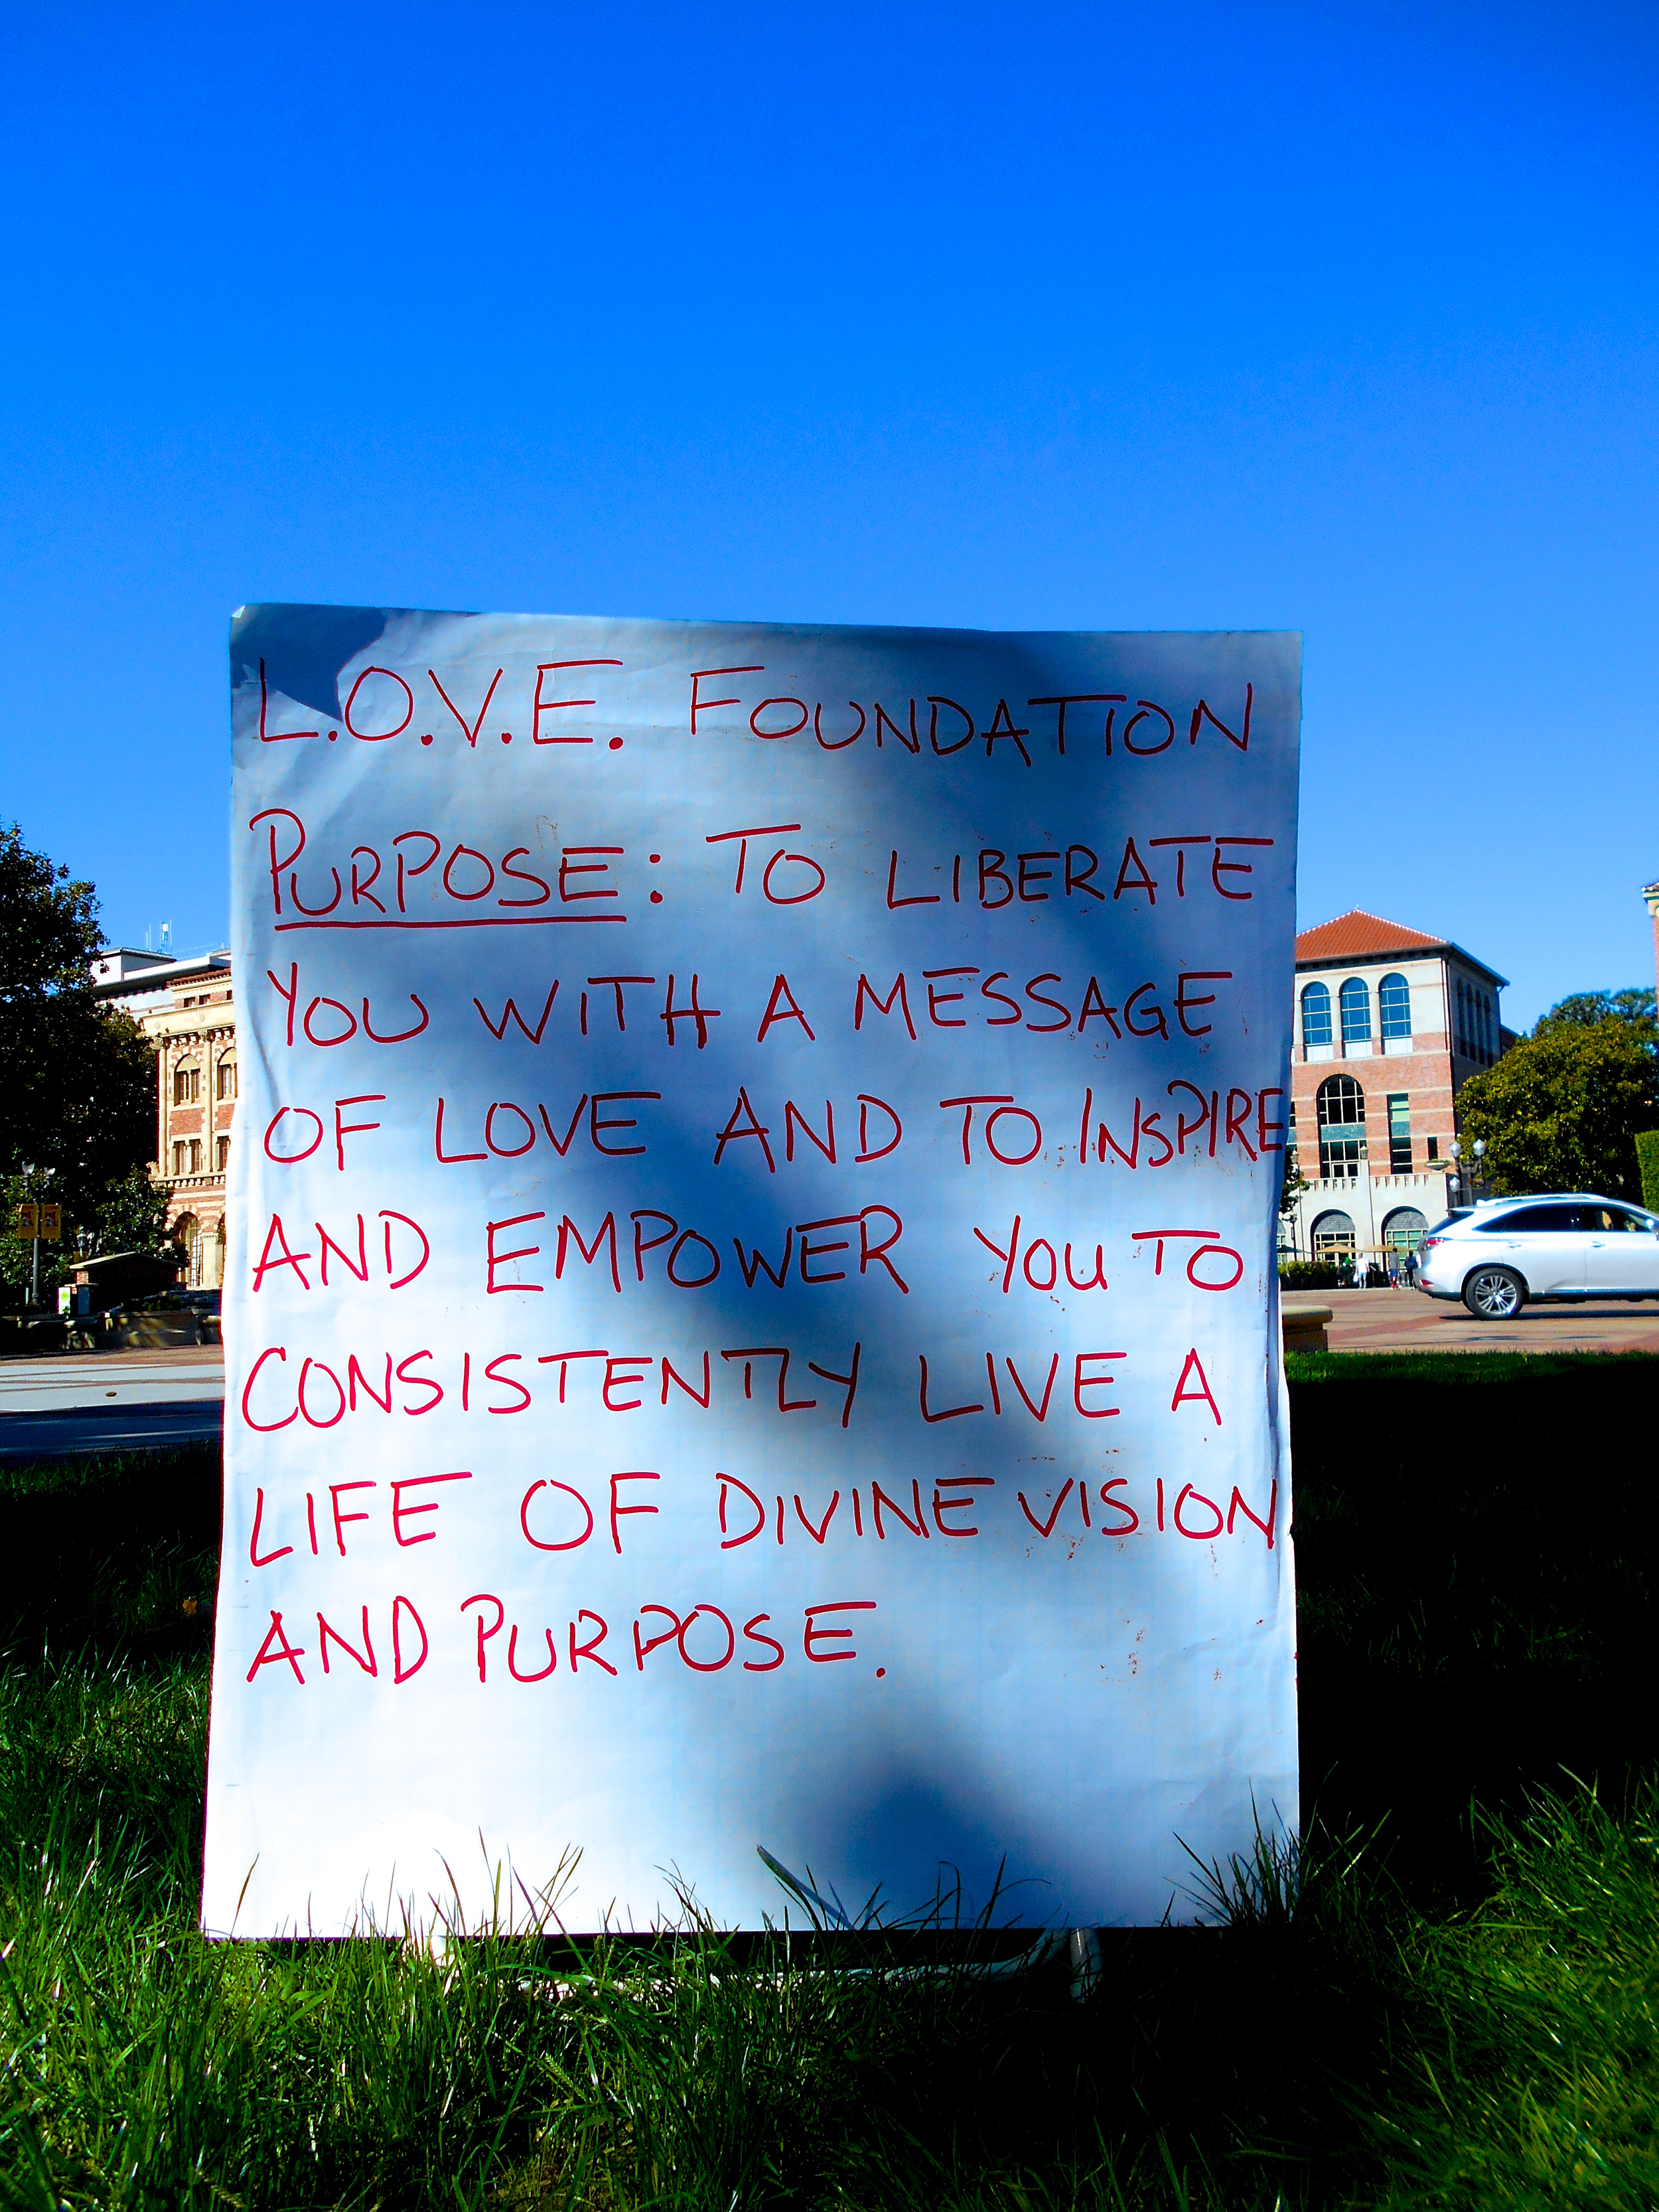 L.O.V.E. FOUNDATION
PURPOSE: TO LIBERATE
YOU WITH A MESSAGE
OF LOVE AND TO INSPIRE
AND EMPOWER YOU TO
CONSISTENTLY LIVE A
LIFE OF DIVINE VISION
AND PURPOSE.